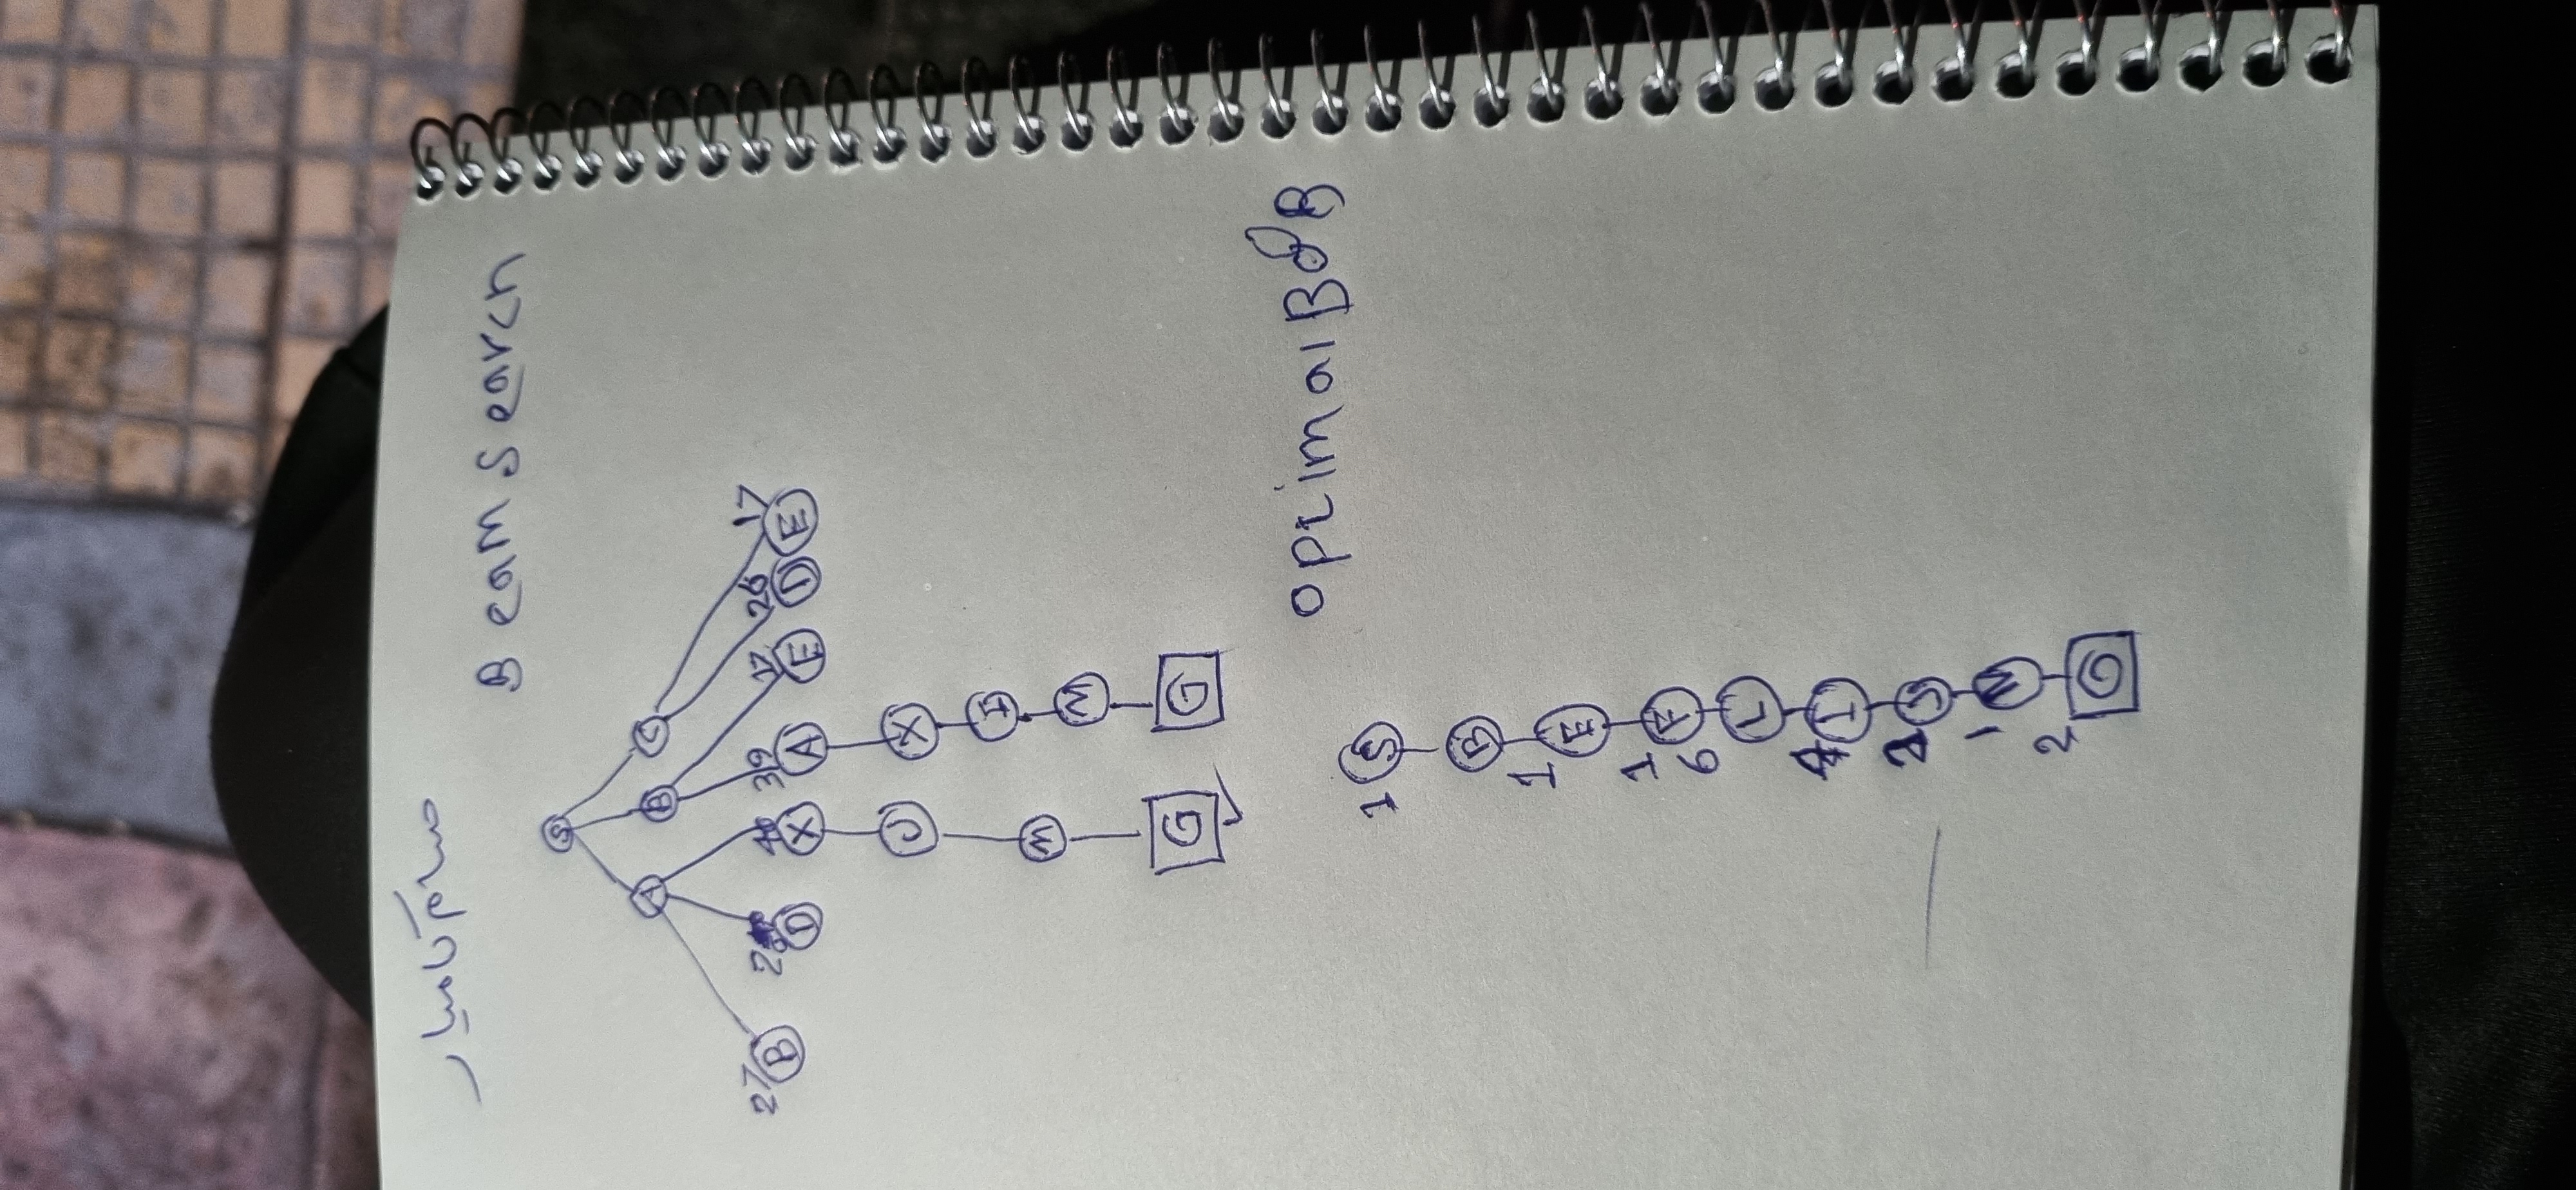 حسام کامیار
Beam Search
S
A B C
27 B 2 D X 39 A 17 E 26 D 17 E
J X
I
M M
G G
optimal B&B
1 S
B
1
E
1
F
6
L
4 I
2 J
1 M
2
G